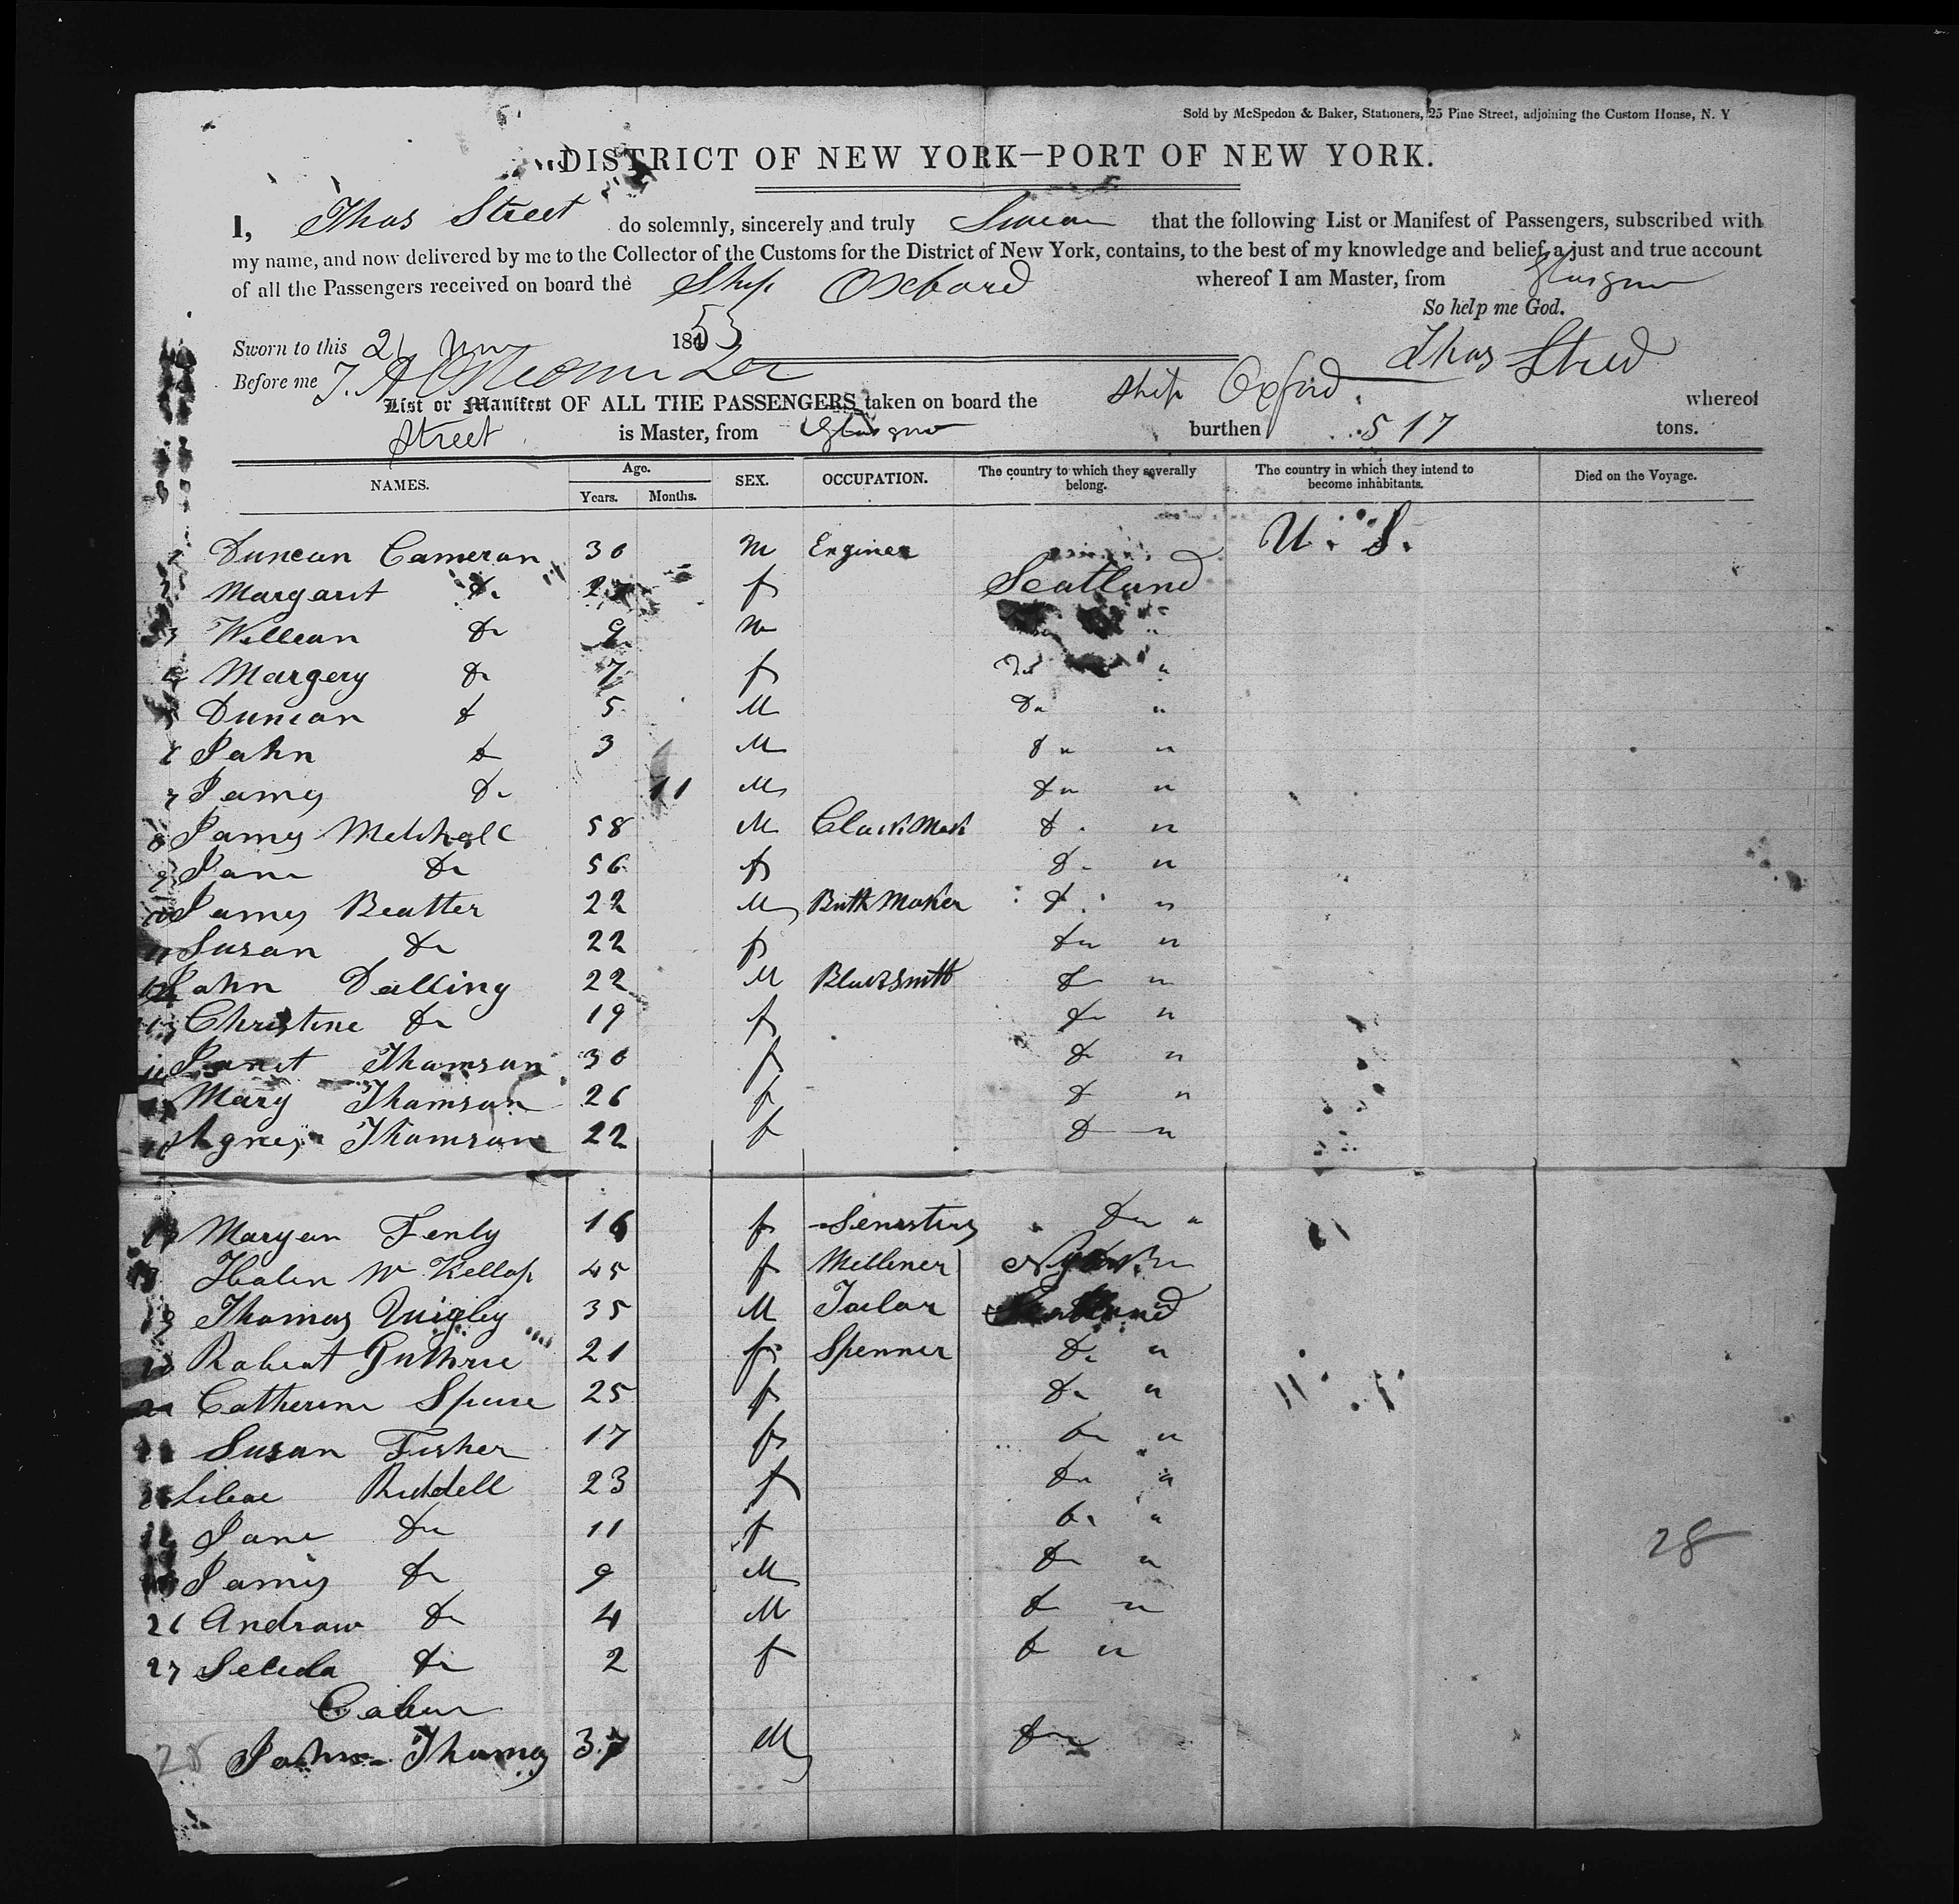 Sold by McSpedon & Baker, Stationers, 25 Pine Street, adjoining the Custom House, N. Y
DISTRICT OF NEW YORK—PORT OF NEW YORK.
I, Thos Street do solemnly, sincerely and truly Swear that the following List or Manifest of Passengers, subscribed with
my name, and now delivered by me to the Collector of the Customs for the District of New York, contains, to the best of my knowledge and belief, a just and true account
of all the Passengers received on board the Ship Oxford whereof I am Master, from Glasgow
So help me God.
Sworn to this 21 1853
Thos Street
Before me
List or Manifest OF ALL THE PASSENGERS taken on board the Ship Oxford whereof
Street is Master, from Glasgow burthen 517 tons.
NAMES. Age. Years. Months. SEX. OCCUPATION. The country to which they severally belong. The country in which they intend to become inhabitants. Died on the Voyage.
1 Duncan Cameron 30 M Enginer U. S.
2 Margarit Do f Scotland
3 Willean Do 9 M "
4 Margery Do 7 f Do "
5 Duncan Do 5 M Do "
6 John Do 3 M Do "
7 James Do 11 M Do "
8 James Mitchell 58 M Do "
9 Jane Do 56 f Do "
10 James Beatter 22 M Maker Do "
11 Susan Do 22 f Do "
12 John Dalling 22 M Blacksmith Do "
13 Christine Do 19 f Do "
Janet Thomson 30 f Do "
Mary Thomson 26 f Do "
Agnes Thomson 22 f Do "
17 Maryan Fenly 16 f Do "
Halen Mc Kellop 45 f Milliner
19 Thomas Quigley 35 M Tailor Scotland
Robert Guthrie 21 f Spenner Do "
Catherine 25 f Do "
Susan Fisher 17 f Do "
Riddell 23 f Do "
Jane Do 11 f Do "
James Do 9 M Do "
26 Andrew Do 4 M Do "
27 Do 2 f Do "
28
Cabin
28 John Thomas 37 M Do